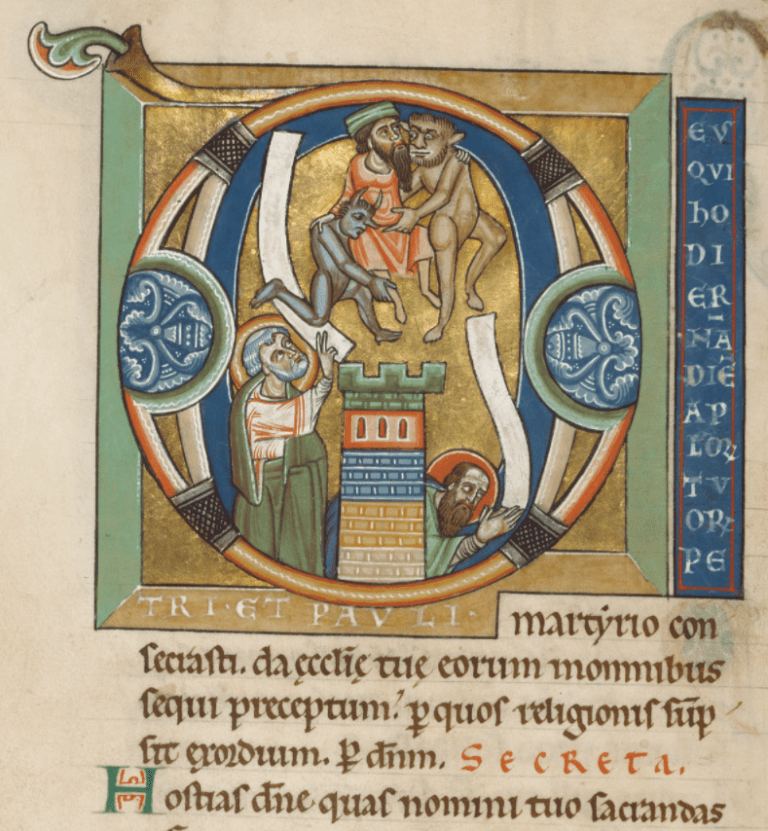 D
EVS
QVI
hO
DI
ER
NA
DIĒ
AP
LOꝜ
TV
OꝜ
PE
TRI·ET PAVLI·
martyrio con
secrasti. da ęcclię tuę eorum in omnibus
sequi preceptum. ꝑ quos religionis sūp
sit exordium. P̲ dn̄m. SECRETA.
Hostias dn̄e quas nomini tuo sacrandas